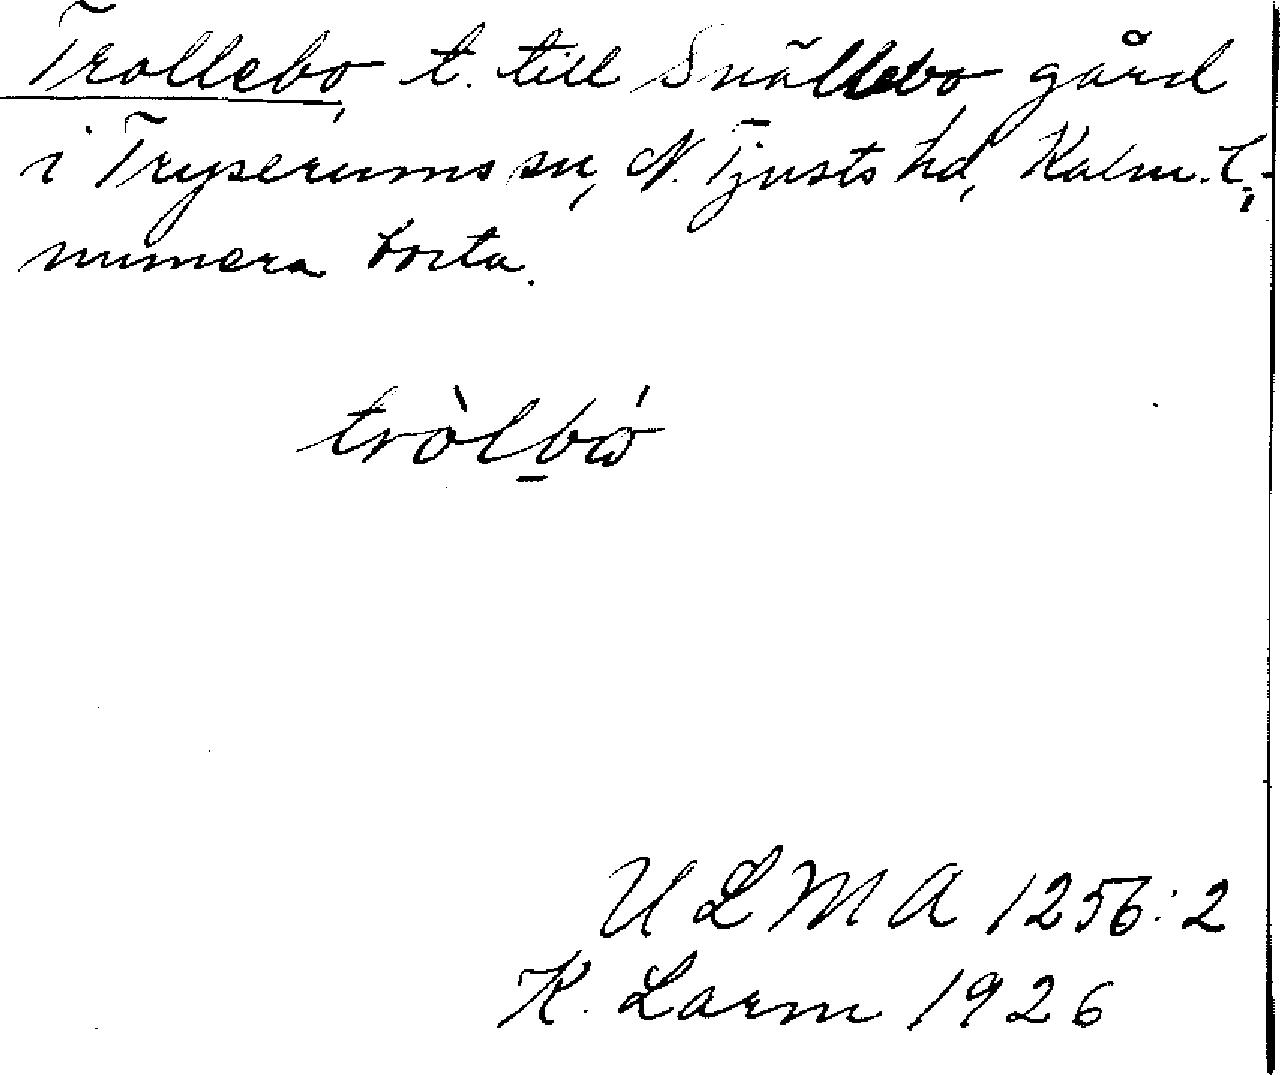 Trollebo, t. till Snällebo gård
i Tryserums sn, N. Tjusts hd, Kalm. L.,
numera borta.
tròlbó
U L M A 1256:2
K. Larm 1926